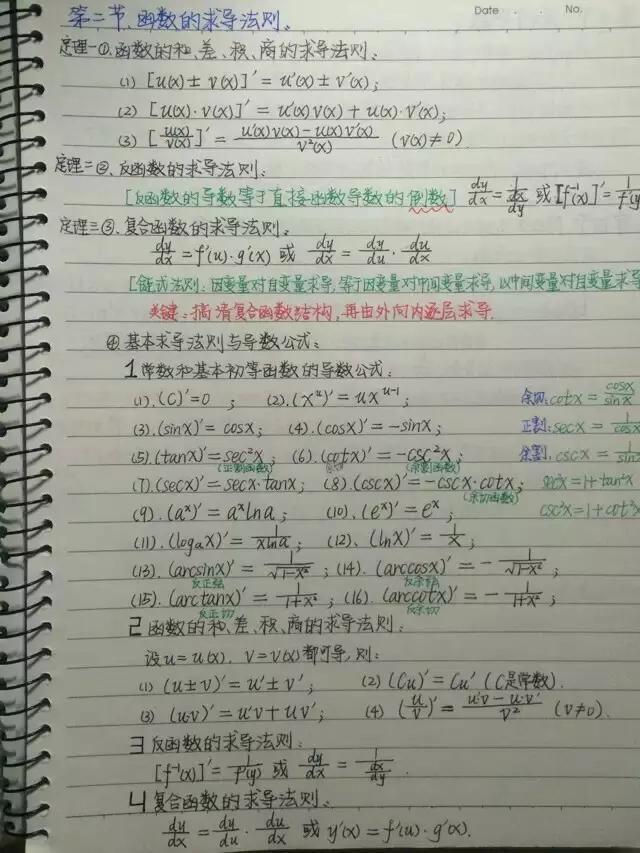 Date . . No.
第二节. 函数的求导法则。
定理一①. 函数的和、差、积、商的求导法则:
(1) [u(x) ± v(x)]' = u'(x) ± v'(x);
(2) [u(x)·v(x)]' = u'(x)v(x) + u(x)·v'(x);
(3) [u(x)/v(x)]' = (u'(x)v(x) - u(x)v'(x))/v²(x) (v(x)≠0)
定理二②. 反函数的求导法则:
[反函数的导数等于直接函数导数的倒数] dy/dx = 1/(dx/dy) 或 [f⁻¹(x)]' = 1/f'(y)
定理三③. 复合函数的求导法则:
dy/dx = f'(u)·g'(x) 或 dy/dx = dy/du · du/dx
[链式法则: 因变量对自变量求导, 等于因变量对中间变量求导, 以中间变量对自变量求导
关键: 搞清复合函数结构, 再由外向内逐层求导.
④ 基本求导法则与导数公式:
1 常数和基本初等函数的导数公式:
(1). (C)' = 0; (2). (xᵘ)' = uxᵘ⁻¹; 余切: cotx = cosx/sinx
(3). (sinx)' = cosx; (4). (cosx)' = -sinx; 正割: secx = 1/cosx
(5). (tanx)' = sec²x; (6). (cotx)' = -csc²x; 余割. cscx = 1/sinx
(正割函数) (余割函数)
(7). (secx)' = secx·tanx; (8). (cscx)' = -cscx·cotx; sec²x = 1+tan²x
(余切函数)
(9). (aˣ)' = aˣlna; (10). (eˣ)' = eˣ; csc²x = 1+cot²x
(11). (logₐx)' = 1/(xlna); (12). (lnx)' = 1/x;
(13). (arcsinx)' = 1/√(1-x²); (14). (arccosx)' = - 1/√(1-x²);
反正弦 反余弦
(15). (arctanx)' = 1/(1+x²); (16). (arccotx)' = - 1/(1+x²);
反正切 反余切
2 函数的和、差、积、商的求导法则:
设 u = u(x), v = v(x) 都可导, 则:
(1) (u±v)' = u'±v'; (2) (Cu)' = Cu' (C是常数).
(3) (u·v)' = u'v + uv'; (4) (u/v)' = (u'v - u·v')/v² (v≠0).
3 反函数的求导法则:
[f⁻¹(x)]' = 1/f'(y) 或 dy/dx = 1/(dx/dy).
4 复合函数的求导法则:
dy/dx = dy/du · du/dx 或 y'(x) = f'(u)·g'(x).